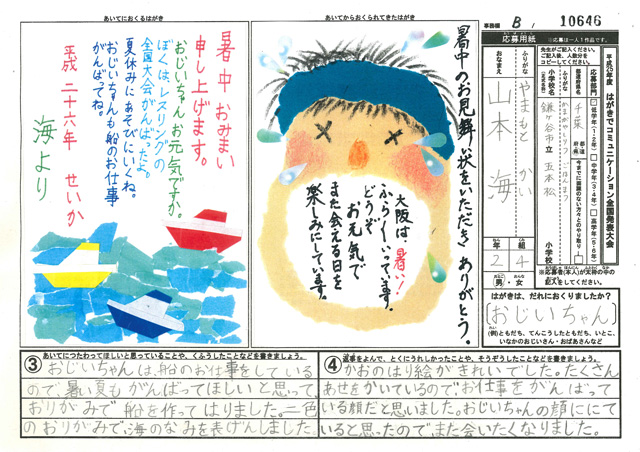 あいてにおくるはがき
暑中おみまい
申し上げます。
おじいちゃん お元気ですか。
ぼくは、レスリングの
全国大会がんばったよ。
夏休みにあそびにいくね。
おじいちゃんも船のお仕事
がんばってね。
平成二十六年 せいか
海より
あいてからおくられてきたはがき
暑中のお見舞い状をいただき ありがとう。
大阪は 暑い!
ふらふらいっています。
どうぞ
お元気で
また会える日を
楽しみにしています。
事務欄 B/ 10646
応募用紙
※応募は一人1作品です。
平成26年度
はがきでコミュニケーション全国発表大会
応募部門
低学年(1・2年)
中学年(3・4年)
高学年(5・6年)
ふりがな
おなまえ
やまもと かい
山本 海
小学校名
千葉
鎌ヶ谷市立 五本松
小学校
年 組
2 4
男・女
はがきは、だれにおくりましたか?
おじいちゃん
(例)ともだち、てんこうしたともだち、いとこ、
いなかのおじいさん・おばあさんなど
③ あいてにつたわってほしいと思っていることや、くふうしたことなどを書きましょう。
おじいちゃんは、船のお仕事をしている
ので、暑い夏もがんばってほしいと思って、
おりがみで船を作ってはりました。二色
のおりがみで、海のなみを表げんしました。
④ 返事をよんで、とくにうれしかったことや、そうぞうしたことなどを書きましょう。
かおのはり絵がきれいでした。たくさん
あせをかいているのでお仕事をがんばって
いる顔だと思いました。おじいちゃんの顔ににて
いると思ったのでまた会いたくなりました。